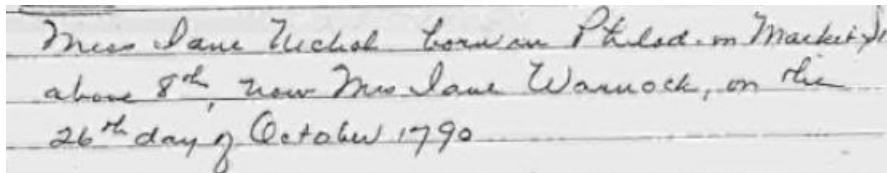 Miss Jane Nichol born in Philad. on Market St
above 8th, now Mrs Jane Warnock, on the
26th day of October 1790